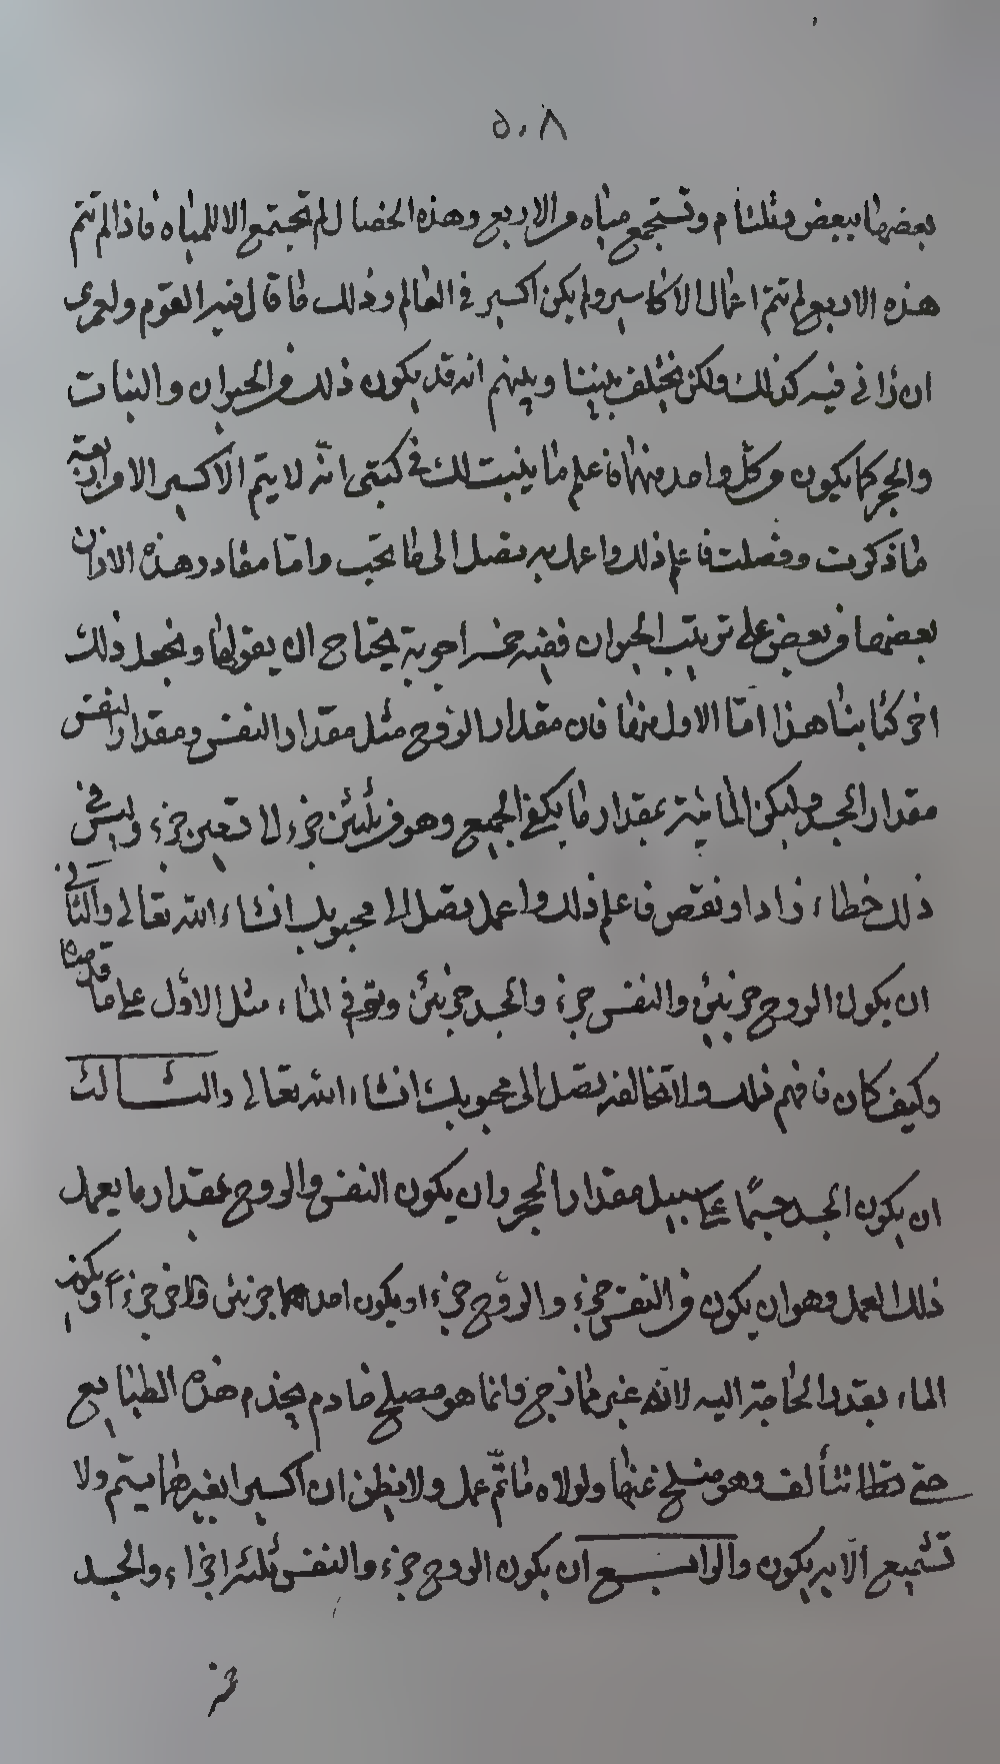 ٥٠٨
بعضها ببعض وتلتأم وتستجمع مياه من الاربع وهذه الخصال لم تجتمع الا للمياه فاذا لم تتم
هذه الاربع لم تتم اعمال الاكاسير ولم يكن اكسير في العالم وذلك ما قال فيه القوم ولعمرى
ان رأى فيه كذلك ولكن يختلف بيننا وبينهم انه قد يكون ذلك من الحيوان والنبات
والحجر كما يكون من كل واحد منها فاعلم ما ينبت لك في كتبى انه لا يتم الاكسير الا من اربعة
ما ذكرت وفصلت فاعلم ذلك واعمل به تصل الى ما تحب واما مقادر هذه الاوزان
بعضها من بعض على تربتب الحيوان ففيه خمسة اجوبة يحتاج ان يقولها ونجعل ذلك
اخر كتابنا هذا امّا الاول منها فان مقدار الروح مثل مقدار النفس ومقدار النفس
مقدار الجسد وليكن المائية بمقدار ما يكفى الجميع وهو من ثلثين جزء لا تعين جزء وليس في
ذلك خطاء زاد او نقص فاعلم ذلك واعمل تصل الى محبوبك انشاء الله تعالى والثانى
ان يكون الروح جزئين والنفس جزء والجسد جزئين وتوفى الماء مثل الاوّل على ما قدمنا
وكيف كان فافهم ذلك ولا تخالفه تصل الى محبوبك انشاء الله تعالى والثالث
ان يكون الجسد جسمًا على سبيل مقدار الحجر وان يكون النفس والروح بمقدار ما يعمل
ذلك العمل وهو ان يكون من النفس جزء والروح جزء او يكون احدهما جزئين والاخر جزءاً ويكون
الماء بقدر الحاجة اليه لانه غير مازج وانما هو مصلح خادم يخدم هذه الطبايع
حتى تتألف وهو منسلخ عنها ولولاه ما تمّ عمل ولا تظن ان اكسيرا بغيرها يتم ولا
تشميع الّا به يكون والرابع ان يكون الروح جزء والنفس ثلثة اجزاء والجسد